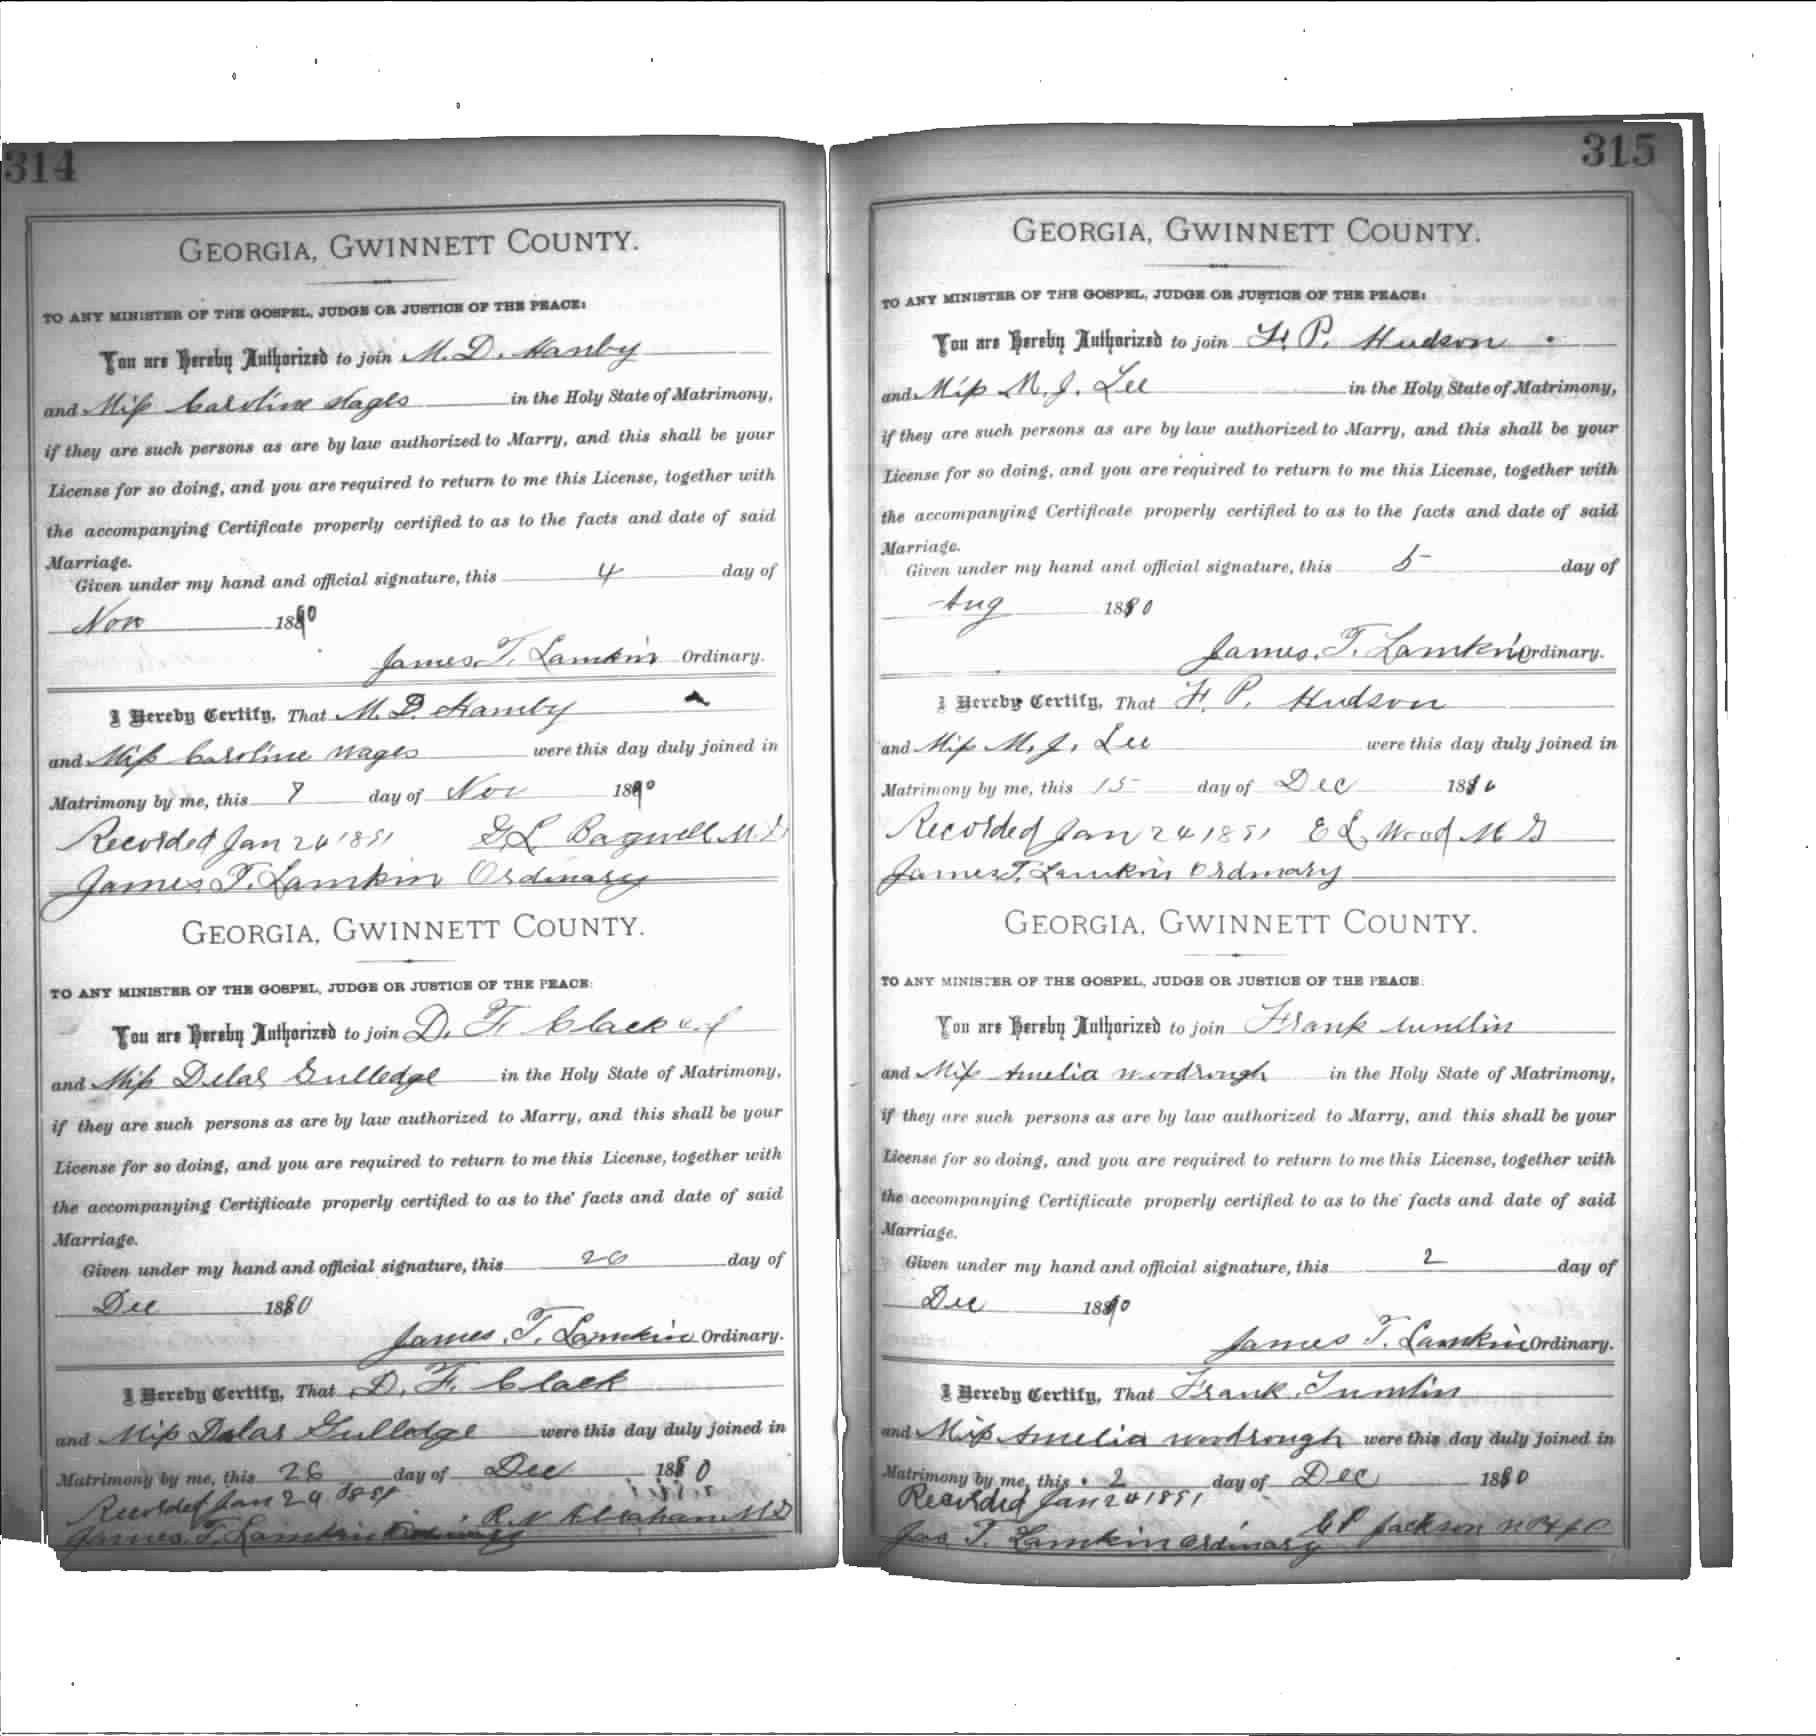 314
GEORGIA, GWINNETT COUNTY.
TO ANY MINISTER OF THE GOSPEL, JUDGE OR JUSTICE OF THE PEACE:
You are Hereby Authorized to join M. D. Hanby
and Miss Caroline Wages in the Holy State of Matrimony,
if they are such persons as are by law authorized to Marry, and this shall be your
License for so doing, and you are required to return to me this License, together with
the accompanying Certificate properly certified to as to the facts and date of said
Marriage.
Given under my hand and official signature, this 4 day of
Nov 1890
James. T. Lamkin Ordinary.
I Hereby Certify, That M. D. Hamby
and Miss Caroline Wages were this day duly joined in
Matrimony by me, this day of Nov 1890
Recorded Jan 24 1891 G L Bagwell M G
James T. Lamkin Ordinary
GEORGIA, GWINNETT COUNTY.
TO ANY MINISTER OF THE GOSPEL, JUDGE OR JUSTICE OF THE PEACE:
You are Hereby Authorized to join D. F. Clack
and Miss Delas Gulledge in the Holy State of Matrimony,
if they are such persons as are by law authorized to Marry, and this shall be your
License for so doing, and you are required to return to me this License, together with
the accompanying Certificate properly certified to as to the facts and date of said
Marriage.
Given under my hand and official signature, this 26 day of
Dec 1890
James. T. Lamkin Ordinary.
I Hereby Certify, That D. F. Clack
and Miss Delas Gulledge were this day duly joined in
Matrimony by me, this 26 day of Dec 1890
Recorded Jan 24 1891
R. N. Abraham M G
James. T. Lamkin Ordinary
315
GEORGIA, GWINNETT COUNTY.
TO ANY MINISTER OF THE GOSPEL, JUDGE OR JUSTICE OF THE PEACE:
You are Hereby Authorized to join F. P. Hudson
and Miss M. J. Lee in the Holy State of Matrimony,
if they are such persons as are by law authorized to Marry, and this shall be your
License for so doing, and you are required to return to me this License, together with
the accompanying Certificate properly certified to as to the facts and date of said
Marriage.
Given under my hand and official signature, this 5 day of
Aug 1890
James. T. Lamkin Ordinary.
I Hereby Certify, That F. P. Hudson
and Miss M. J. Lee were this day duly joined in
Matrimony by me, this 15 day of Dec 1890
Recorded Jan 24 1891 E L Wood M G
James T. Lamkin Ordinary
GEORGIA, GWINNETT COUNTY.
TO ANY MINISTER OF THE GOSPEL, JUDGE OR JUSTICE OF THE PEACE:
You are Hereby Authorized to join Frank Tumlin
and Miss Amelia Woodrough in the Holy State of Matrimony,
if they are such persons as are by law authorized to Marry, and this shall be your
License for so doing, and you are required to return to me this License, together with
the accompanying Certificate properly certified to as to the facts and date of said
Marriage.
Given under my hand and official signature, this 2 day of
Dec 1890
James T. Lamkin Ordinary.
I Hereby Certify, That Frank. Tumlin
and Miss Amelia Woodrough were this day duly joined in
Matrimony by me, this 2 day of Dec 1890
Recorded Jan 24 1891
Jas T. Lamkin Ordinary C P Jackson N P & J P